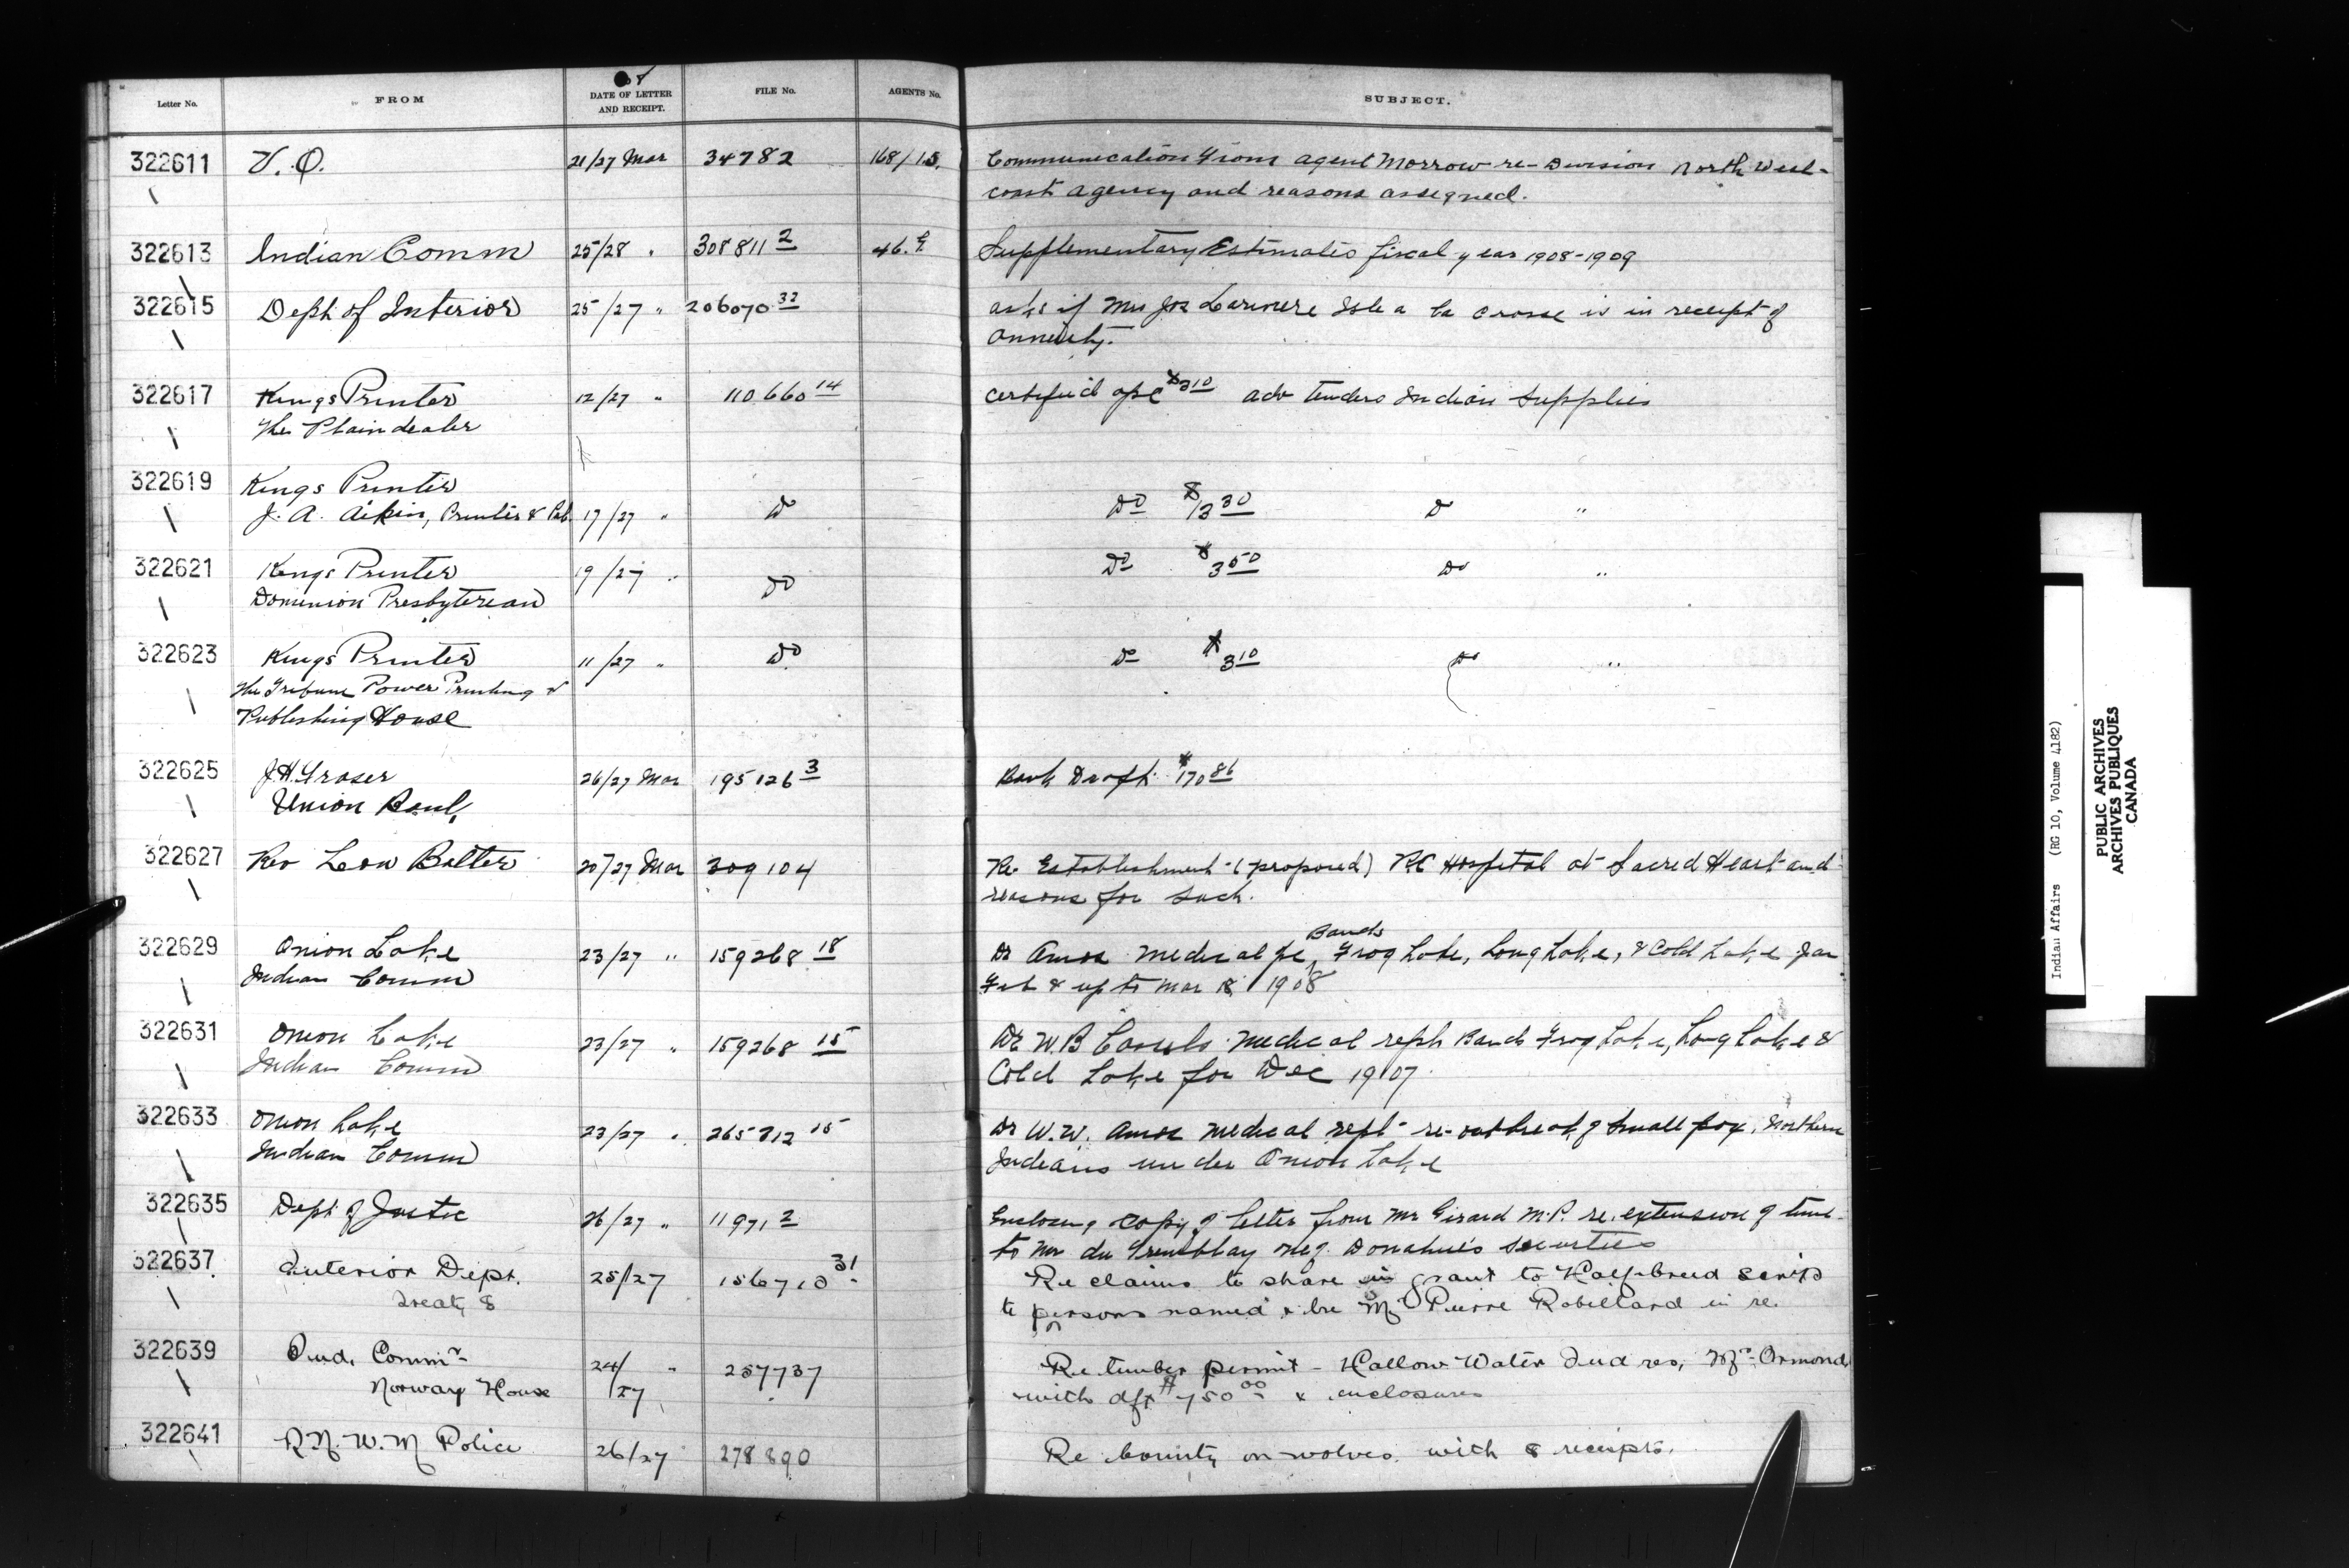 08
Letter No. FROM DATE OF LETTER AND RECEIPT. FILE No. AGENTS No. SUBJECT.
322611 V.O. 21/27 Mar 34782 168/15. Communication from agent Morrow re-Division North West-
coast agency and reasons assigned.
322613 Indian Comm 25/28 " 308811 2 46. Supplementary Estimates fiscal year 1908-1909
322615 Dept of Interior 25/27 " 206070 32 asks if Mrs Jos Isle a la Crosse is in receipt of
annuity.
322617 Kings Printer 12/27 " 110660 14 certified apc $3 10 adv tenders Indian Supplies
The Plaindealer
322619 Kings Printer
J. A. Aikin, Printer & Pub. 17/27 " Do Do $13 30 Do "
322621 Kings Printer 19/27 " Do Do $3 50 Do "
Dominion Presbyterian
322623 Kings Printer 11/27 " Do Do $3 10 Do "
The Tribune Power Printing &
Publishing House
322625 J.H. Fraser 26/27 Mar 195126 3 Bank Draft $170 86
Union Bank
322627 Rev Leon Balter 20/27 Mar 309104 Re Establishment (proposed) RC Hospital at Sacred Heart and
reasons for such.
322629 Onion Lake 23/27 " 159268 18 Dr Amos medical re Bands Frog Lake, Long Lake, & Cold Lake Jan
Indian Comm Feb & up to Mar 18 1908
322631 Onion Lake 23/27 " 159268 15 Dr W.B. medical reph Bands Frog Lake, Long Lake &
Indian Comm Cold Lake for Dec 1907.
322633 Onion Lake 23/27 " 265712 15 Dr W.W. Amos medical rept re-outbreak of Small pox, Northern
Indian Comm Indians under Onion Lake
322635 Dept of Justice 26/27 " 11971 2 Enclosing copy of letter from Mr Girard M.P. re. extension of time
to Mr du Tremblay neg. Donahue's securities
322637 Interior Dept. 25/27 156710 31 Re claims to share in grant to Half-breed scrip
Treaty 8 to persons named & Mr Pierre Robillard in re.
322639 Ind. Commr 24/27 " 257737 Re timber permit - Hallow Water Ind res, Mr Ormond
Norway House with dft $750 00 & enclosures
322641 R.N.W.M Police 26/27 278890 Re bounty on wolves with 8 receipts.
Indian Affairs (RG 10, Volume 4182)
PUBLIC ARCHIVES
ARCHIVES PUBLIQUES
CANADA